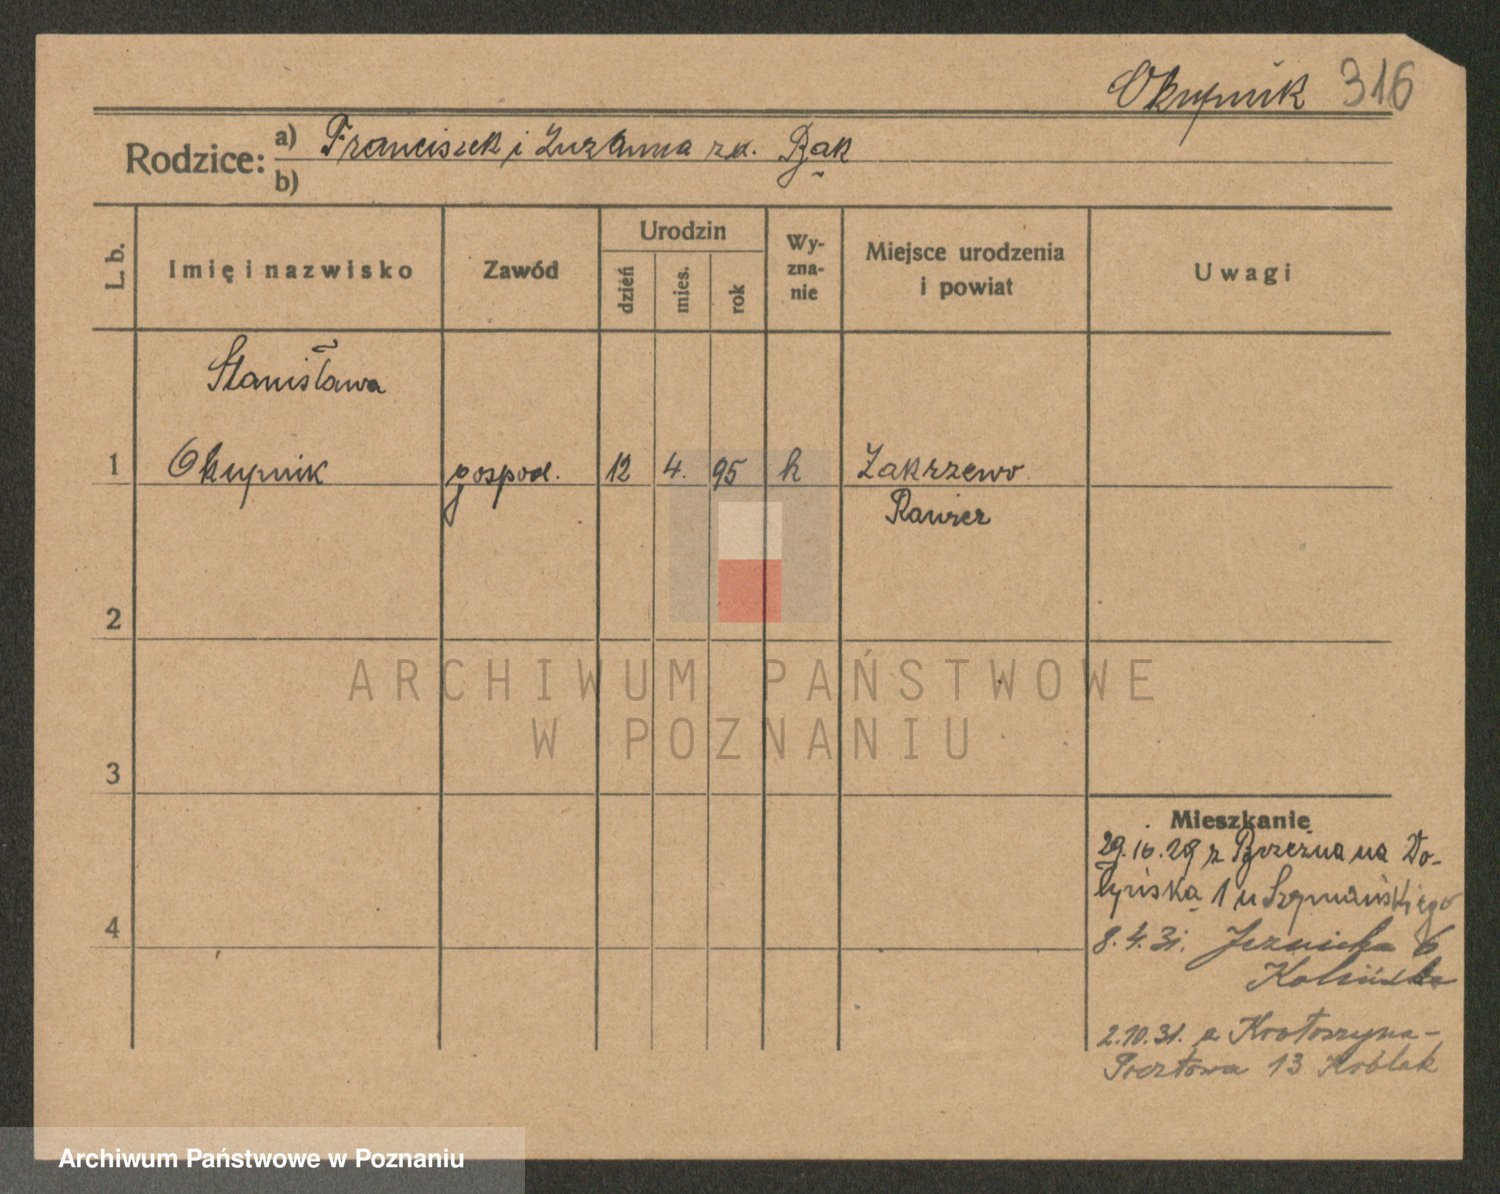 Okupnik 316
Rodzice: a) Franciszek i Zuzanna z d. Bąk
b)
L. b.
Imię i nazwisko
Zawód
Urodzin
dzień
mies.
rok
Wy-
zna-
nie
Miejsce urodzenia
i powiat
Uwagi
Stanisława
1 Okupnik gospod. 12 4. 95 k Zakrzewo
Rawicz
2
3
4
Mieszkanie
29.10.29 z Brzeźna na Do-
lińska 1 u Szymańskiego
8.4.31. Jeznicka 6
Kolińska
2.10.31. z Krotoszyna-
Pocztowa 13 Koblak
ARCHIWUM PAŃSTWOWE
W POZNANIU
Archiwum Państwowe w Poznaniu